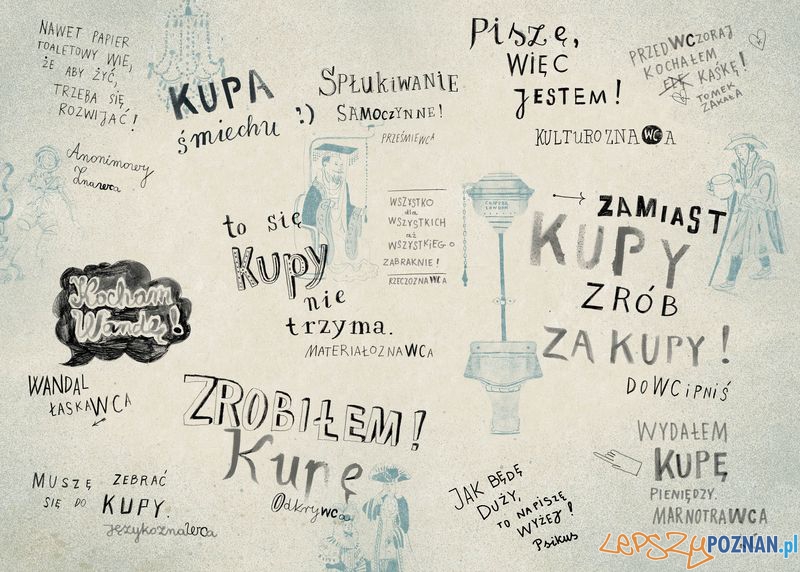 NAWET PAPIER
TOALETOWY WIE,
ŻE ABY ŻYĆ,
TRZEBA SIĘ
ROZWIJAĆ!
Anonimowy
Znawca
KUPA
śmiechu :)
SPŁUKIWANIE
SAMOCZYNNE!
PRZEŚMIEWCA
PISZĘ,
WIĘC
JESTEM!
KULTUROZNAWCA
PRZEDWCZORAJ
KOCHAŁEM
KAŚKĘ!
TOMEK
ZAKAŁA
WSZYSTKO
dla
WSZYSTKICH
aż
WSZYSTKIEGO
ZABRAKNIE!
RZECZOZNAWCA
to się
Kupy
nie
trzyma.
MATERIAŁOZNAWCA
ZAMIAST
KUPY
ZRÓB
ZAKUPY!
DOWCIPNIŚ
Kocham
Wandę!
WANDAL
ŁASKAWCA
ZROBIŁEM!
Kupę
Odkrywca
MUSZĘ ZEBRAĆ
SIĘ DO KUPY.
Językoznawca
JAK BĘDĘ
DUŻY,
TO NAPISZĘ
WYŻEJ!
Psikus
WYDAŁEM
KUPĘ
PIENIĘDZY.
MARNOTRAWCA
LEPSZYPOZNAN.pl